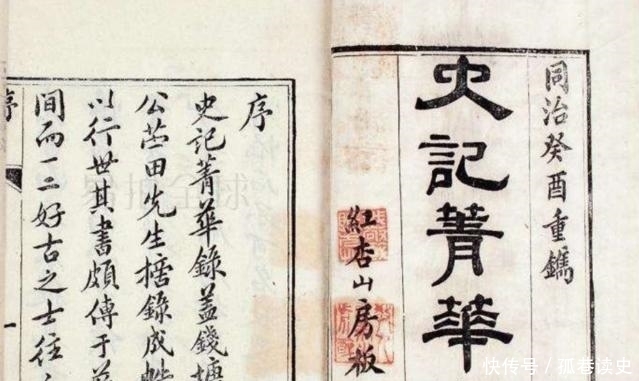 同治癸酉重鐫
史記菁華
紅杏山房板
序
史記菁華錄蓋錢塘
公苧田先生錄成帙
以行世其書頗傳于
間而一二好古之士往
序
一
快传号／孤巷读史